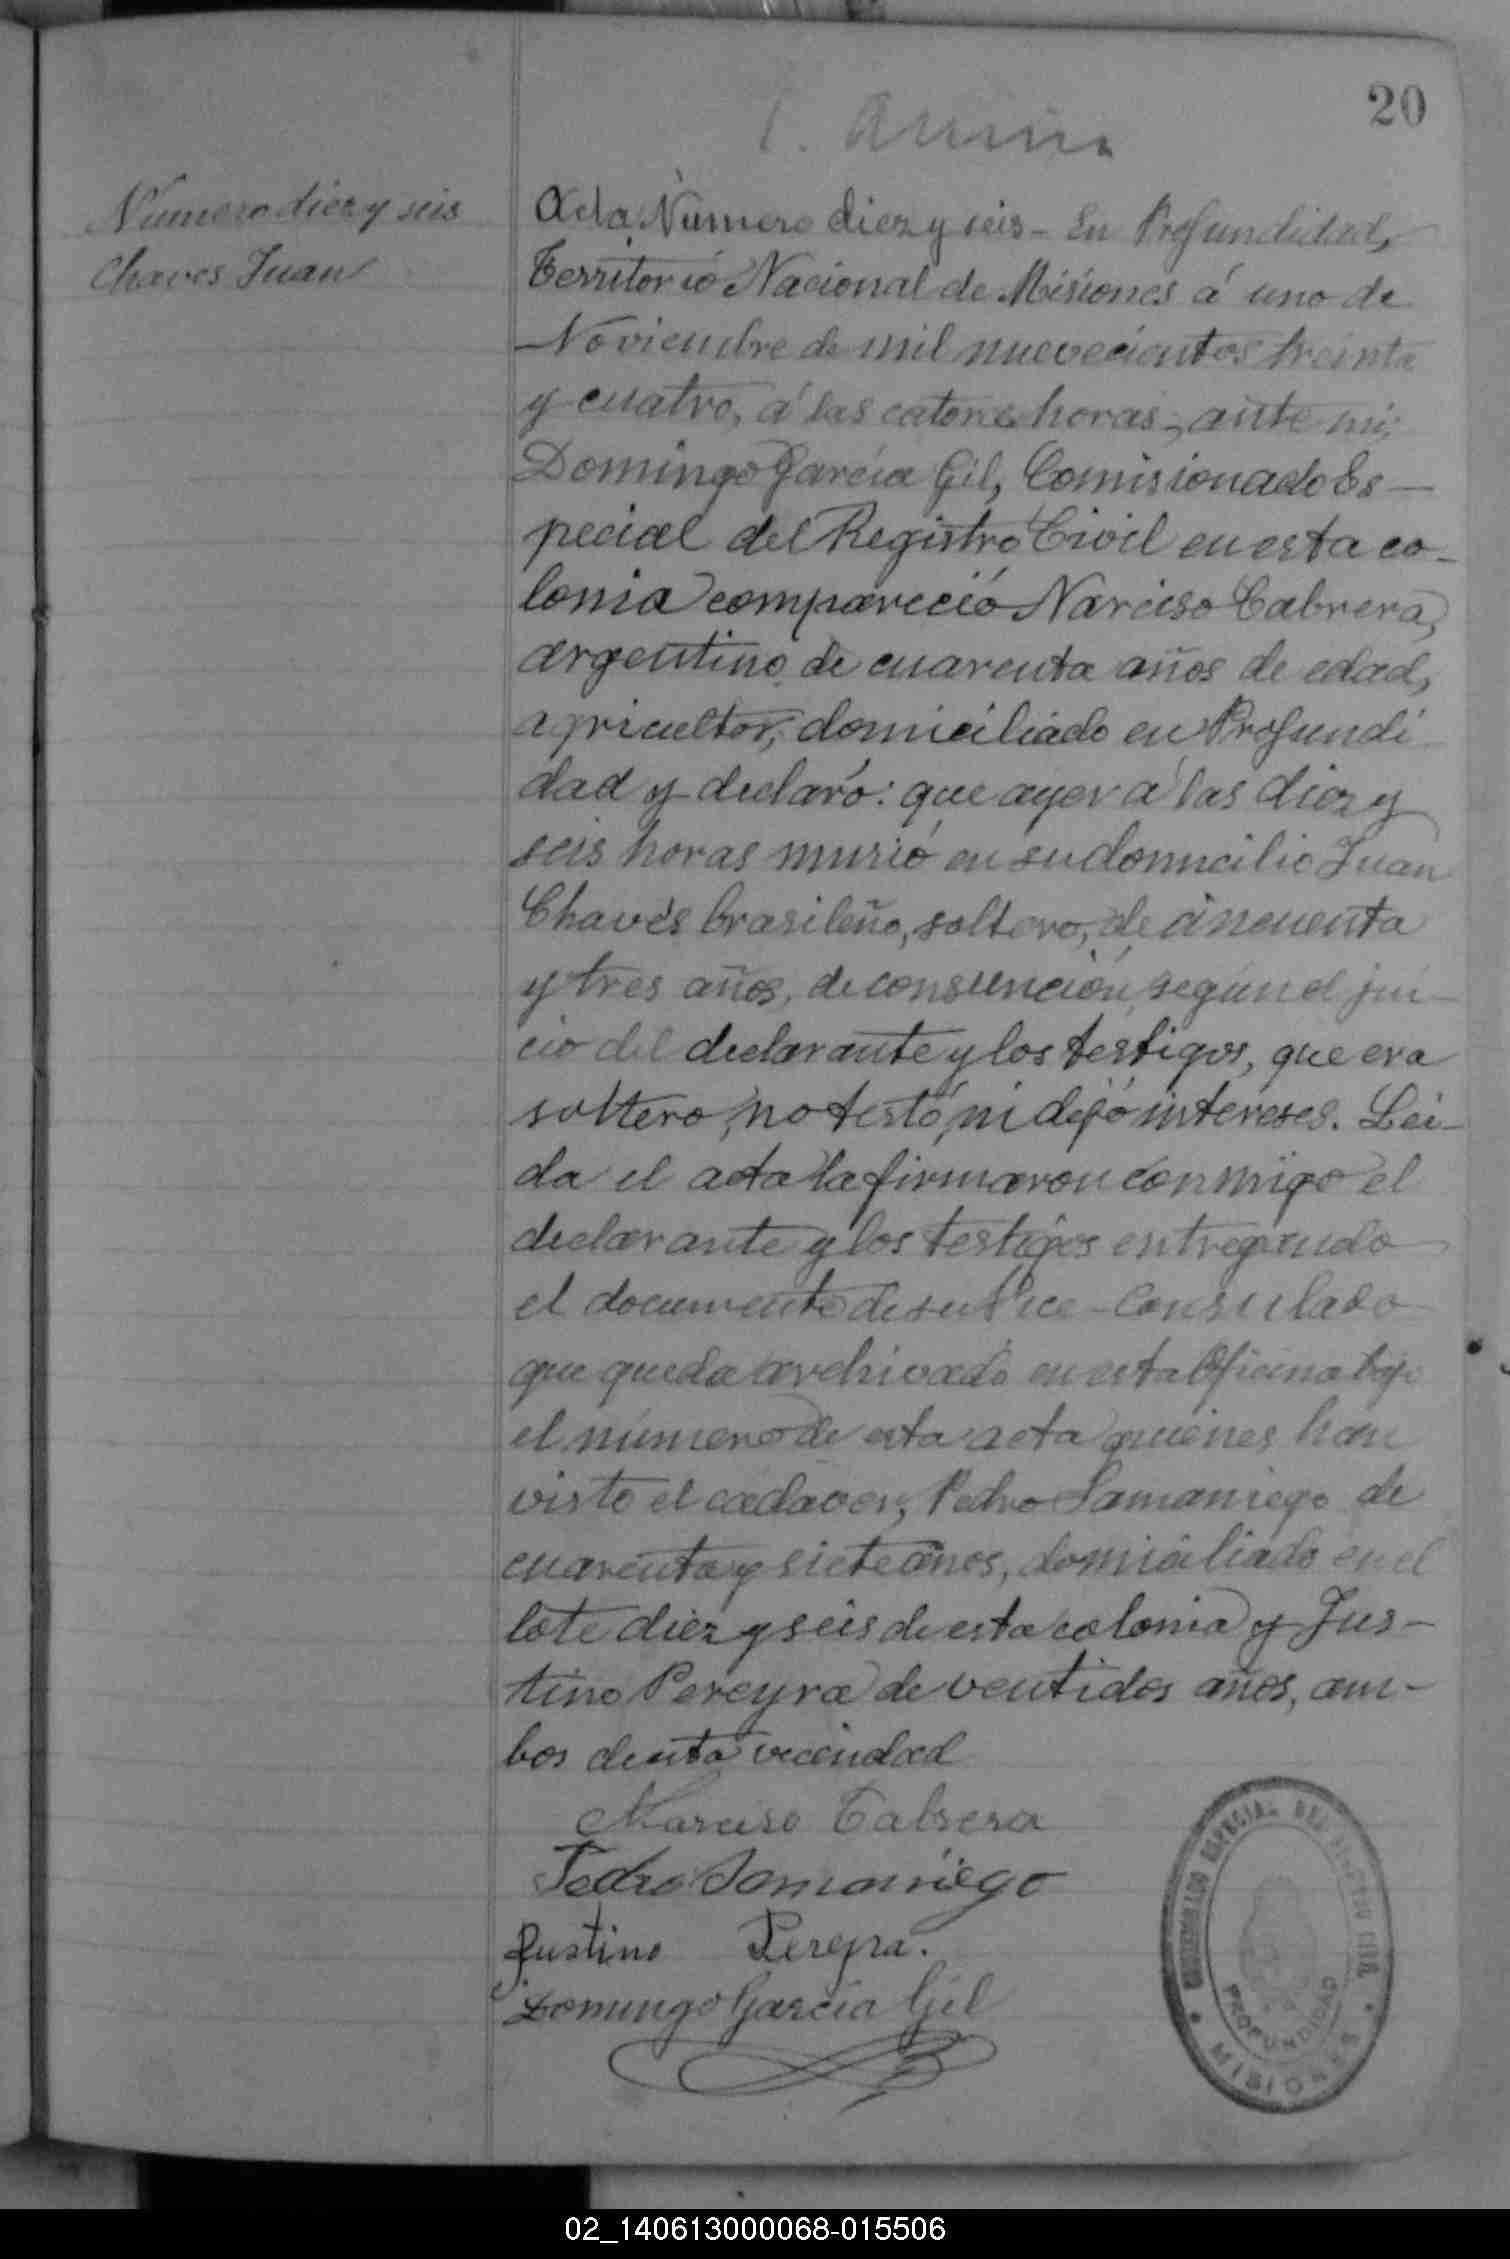 20
Numero diez y seis
Chaves Juan
Acta Número diez y seis - En Profundidad,
Territorio Nacional de Misiones á uno de
Noviembre de mil nuevecientos treinta
y cuatro, á las catorce horas, ante mí,
Domingo García Gil, Comisionado Es-
pecial del Registro Civil en esta co-
lonia compareció Narciso Cabrera,
argentino de cuarenta años de edad,
agricultor, domiciliado en Profundi-
dad y declaró: que ayer á las diez y
seis horas murió en su domicilio Juan
Chaves brasileño, soltero, de cincuenta
y tres años, de consunción, según el jui-
cio del declarante y los testigos, que era
soltero, no testó, ni dejó intereses. Lei-
da el acta la firmaron conmigo el
declarante y los testigos entregando
el documento de su Vice-Consulado
que queda archivado en esta Oficina bajo
el número de esta acta quienes han
visto el cadaver, Pedro Samaniego de
cuarenta y siete años, domiciliado en el
lote diez y seis de esta colonia y Jus-
tino Pereyra de ventidos años, am-
bos de esta vecindad
Narciso Cabrera
Pedro Samaniego
Justino Pereyra.
Domingo García Gil
COMISIONADO ESPECIAL DEL REGISTRO CIVIL
PROFUNDIDAD
MISIONES
02_140613000068-015506